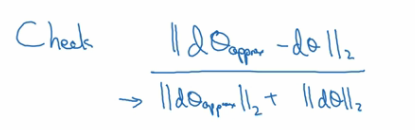 Check ‖dθapprox - dθ‖₂
→ ‖dθapprox‖₂ + ‖dθ‖₂